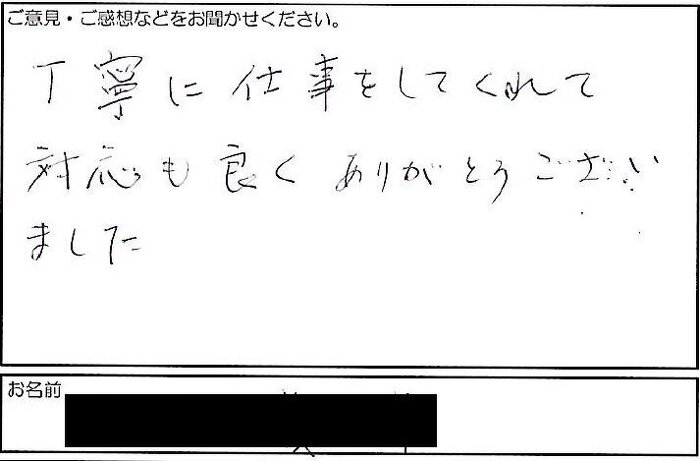 ご意見・ご感想などをお聞かせください。
丁寧に仕事をしてくれて
対応も良くありがとうござい
ました
お名前